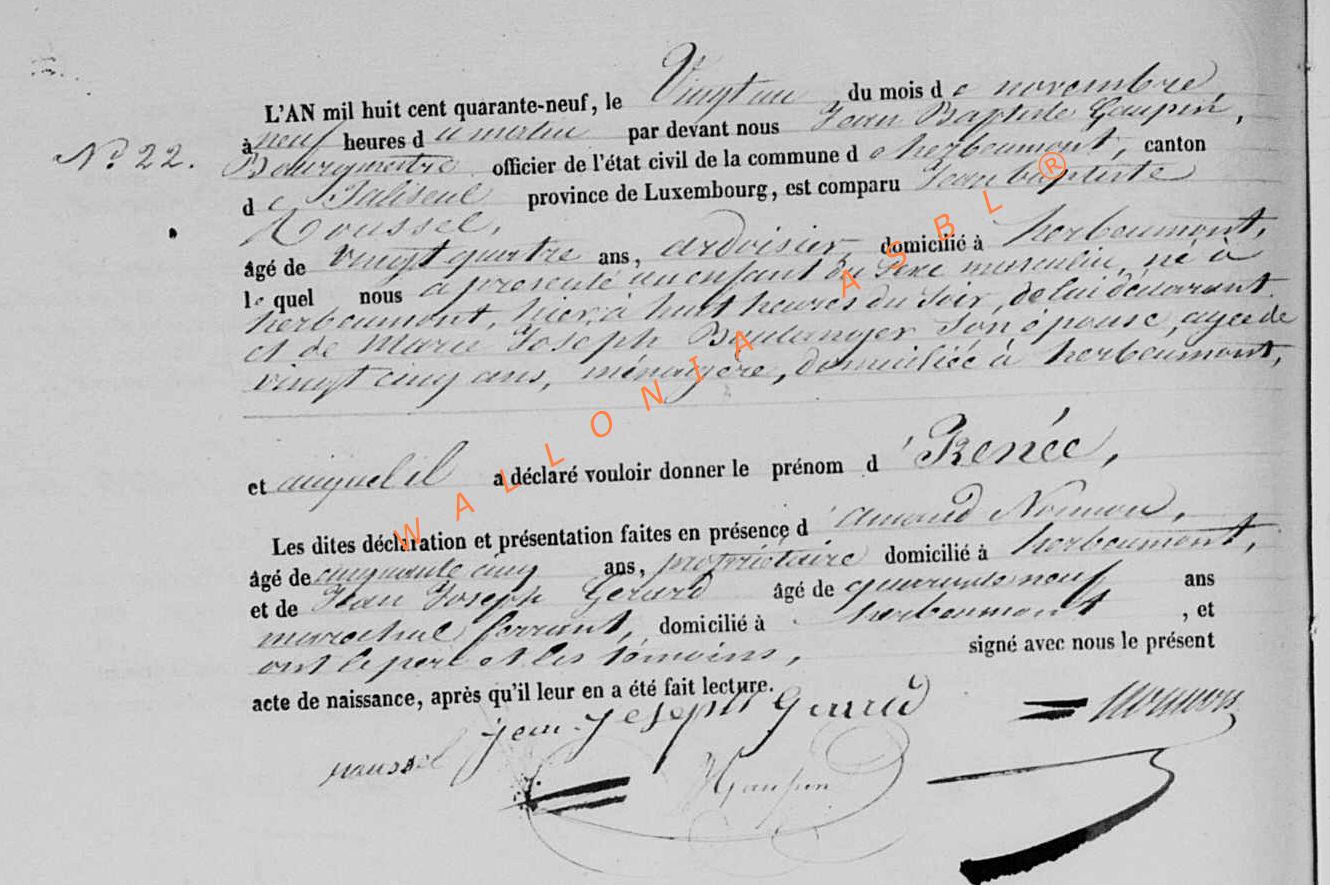 L'AN mil huit cent quarante-neuf, le Vingt un du mois de novembre,
à neuf heures du matin par devant nous Jean Baptiste Gaupin,
N.º 22.
Bourgmestre officier de l'état civil de la commune de herbeumont, canton
de Paliseul province de Luxembourg, est comparu Jean baptiste
Roussel,
âgé de vingt quatre ans, ardoisier, domicilié à herbeumont,
le quel nous a présenté un enfant du sexe masculin, né à
herbeumont, hier, à huit heures du soir, de lui déclarant
et de Marie Joseph Boulanger son épouse, agée de
vingt cinq ans, ménagère, domiciliée à herbeumont,
et auquel il a déclaré vouloir donner le prénom d' Renée,
Les dites déclaration et présentation faites en présence d' amand Noirron,
âgé de cinquante cinq ans, propriétaire domicilié à herbeumont,
et de Jean Joseph Gerard âgé de quarante neuf ans
marechal ferrant, domicilié à herbeumont, et
ont le pere et les témoins, signé avec nous le présent
acte de naissance, après qu'il leur en a été fait lecture.
jean-joseph gerard
roussel
JBGaupin
WALLONIA ASBL ®